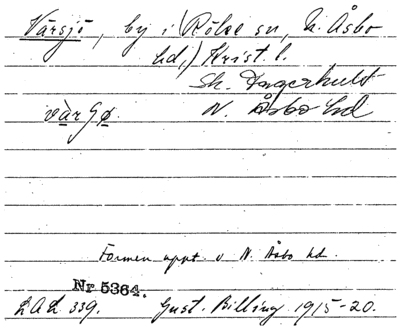 Värsjö, by i Röke sn, N. Åsbo
hd, Krist. l.
Sk. Fagerhult
vàrʃø. N. Åsbo hd
Formen uppt. i N. Åsbo hd.
Nr 5364.
LAL 339. Gust. Billing 1915-20.